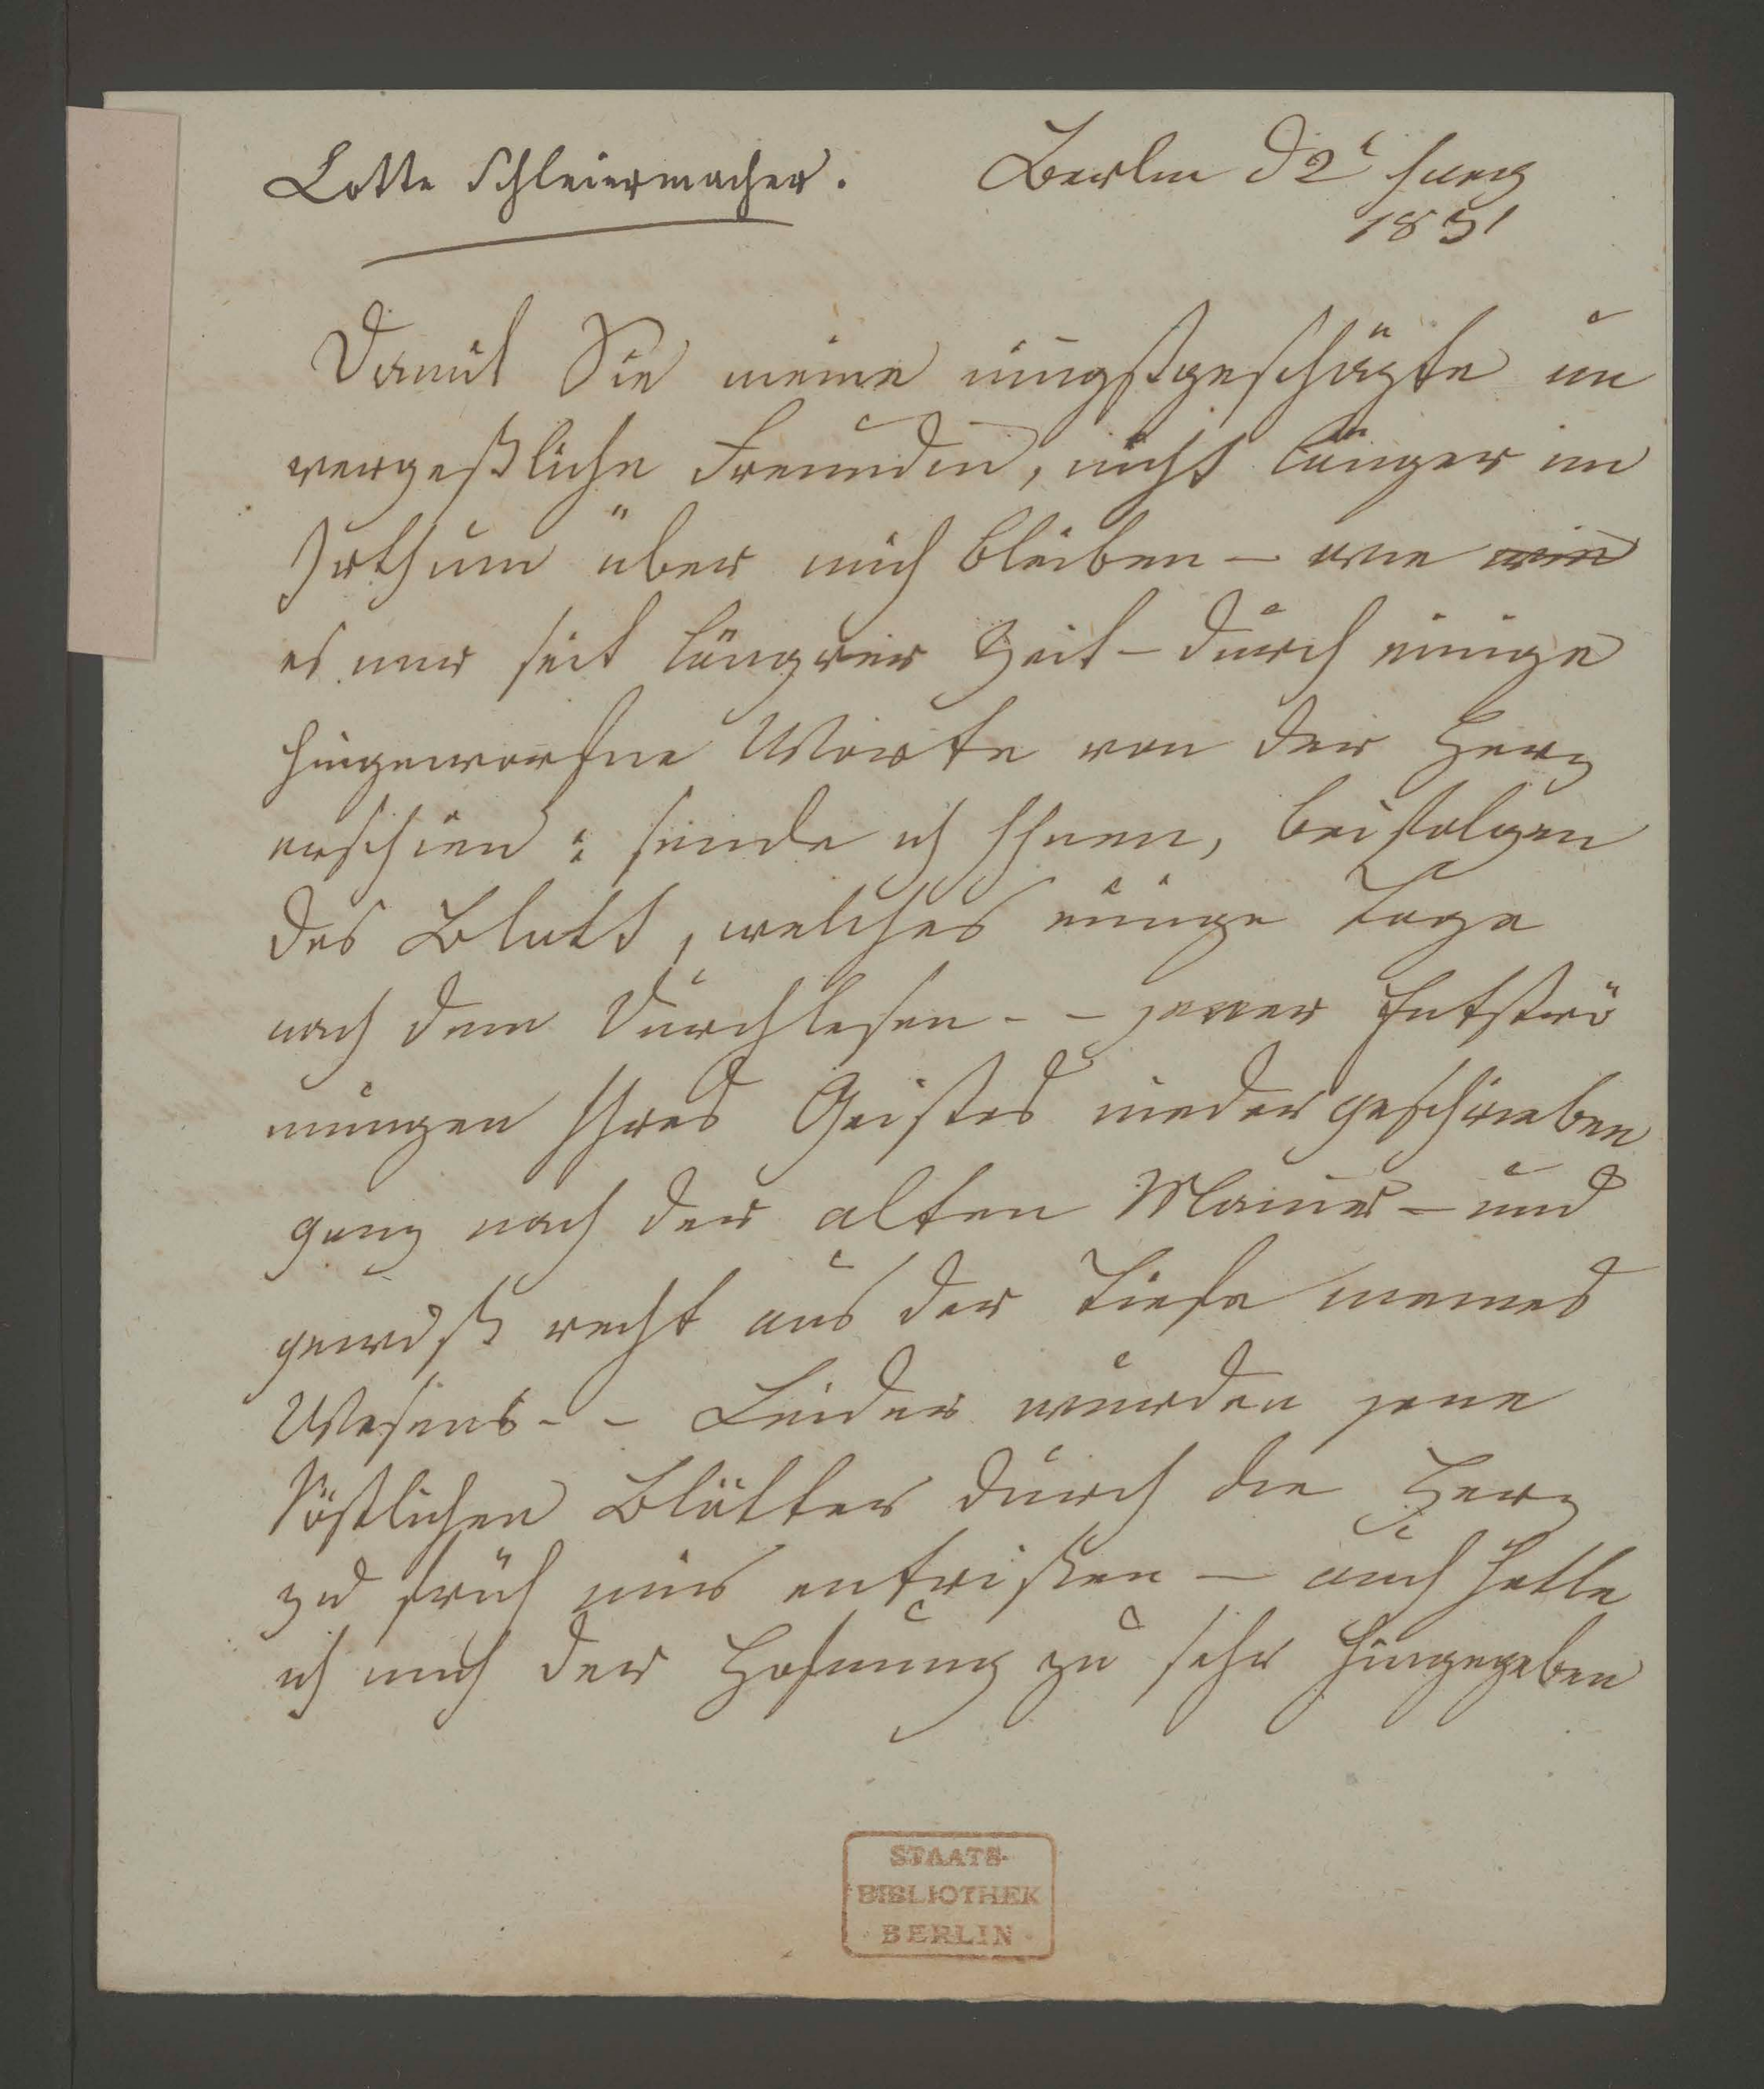 Lotte Schleiermacher.
Berlin d 2t
18
Damit Sie meine innigstgeschäzte un
vergeßliche Freundin, nicht länger im
Irthum über mich bleiben – wie
es mir seit längrer Zeit – durch einige
hingeworfne Worte von der Herz
erschien: sende ich Ihnen, beifolgen
des Blatt, welches einige Tage
nach dem Durchlesen – – jener Entströ
mungen Ihres Geistes niedergeschrieben
ganz nach der alten Manier – und
gewiß recht aus der Tiefe meines
Wesens – – Leider wurden jene
köstlichen Blätter durch die Herz
zu früh mir entrißen – auch hatte
ich mich der Hofnung zu sehr hingegeben
STAATS-
BIBLIOTHEK
BERLIN